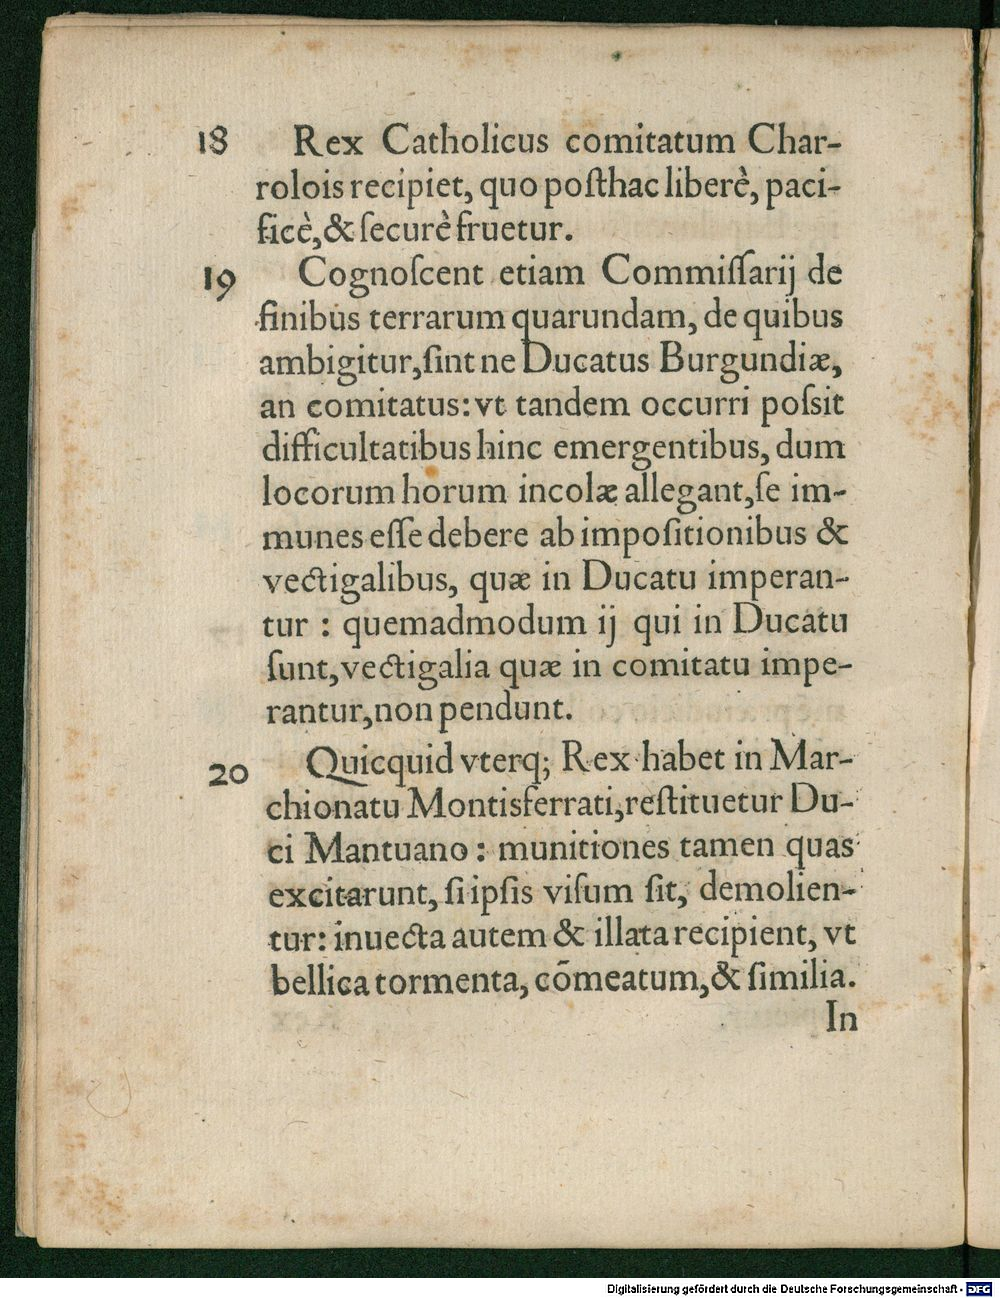 18 Rex Catholicus comitatum Char-
rolois recipiet, quo poſthac liberè, paci-
ficè, & ſecurè fruetur.
19 Cognoſcent etiam Commiſſarij de
finibus terrarum quarundam, de quibus
ambigitur, ſint ne Ducatus Burgundiæ,
an comitatus: vt tandem occurri poſsit
difficultatibus hinc emergentibus, dum
locorum horum incolæ allegant, ſe im-
munes eſſe debere ab impoſitionibus &
vectigalibus, quæ in Ducatu imperan-
tur : quemadmodum ij qui in Ducatu
ſunt, vectigalia quæ in comitatu impe-
rantur, non pendunt.
20 Quicquid vterq; Rex habet in Mar-
chionatu Montisferrati, reſtituetur Du-
ci Mantuano : munitiones tamen quas
excitarunt, ſi ipſis viſum ſit, demolien-
tur: inuecta autem & illata recipient, vt
bellica tormenta, cōmeatum, & ſimilia.
In
Digitalisierung gefördert durch die Deutsche Forschungsgemeinschaft - DFG